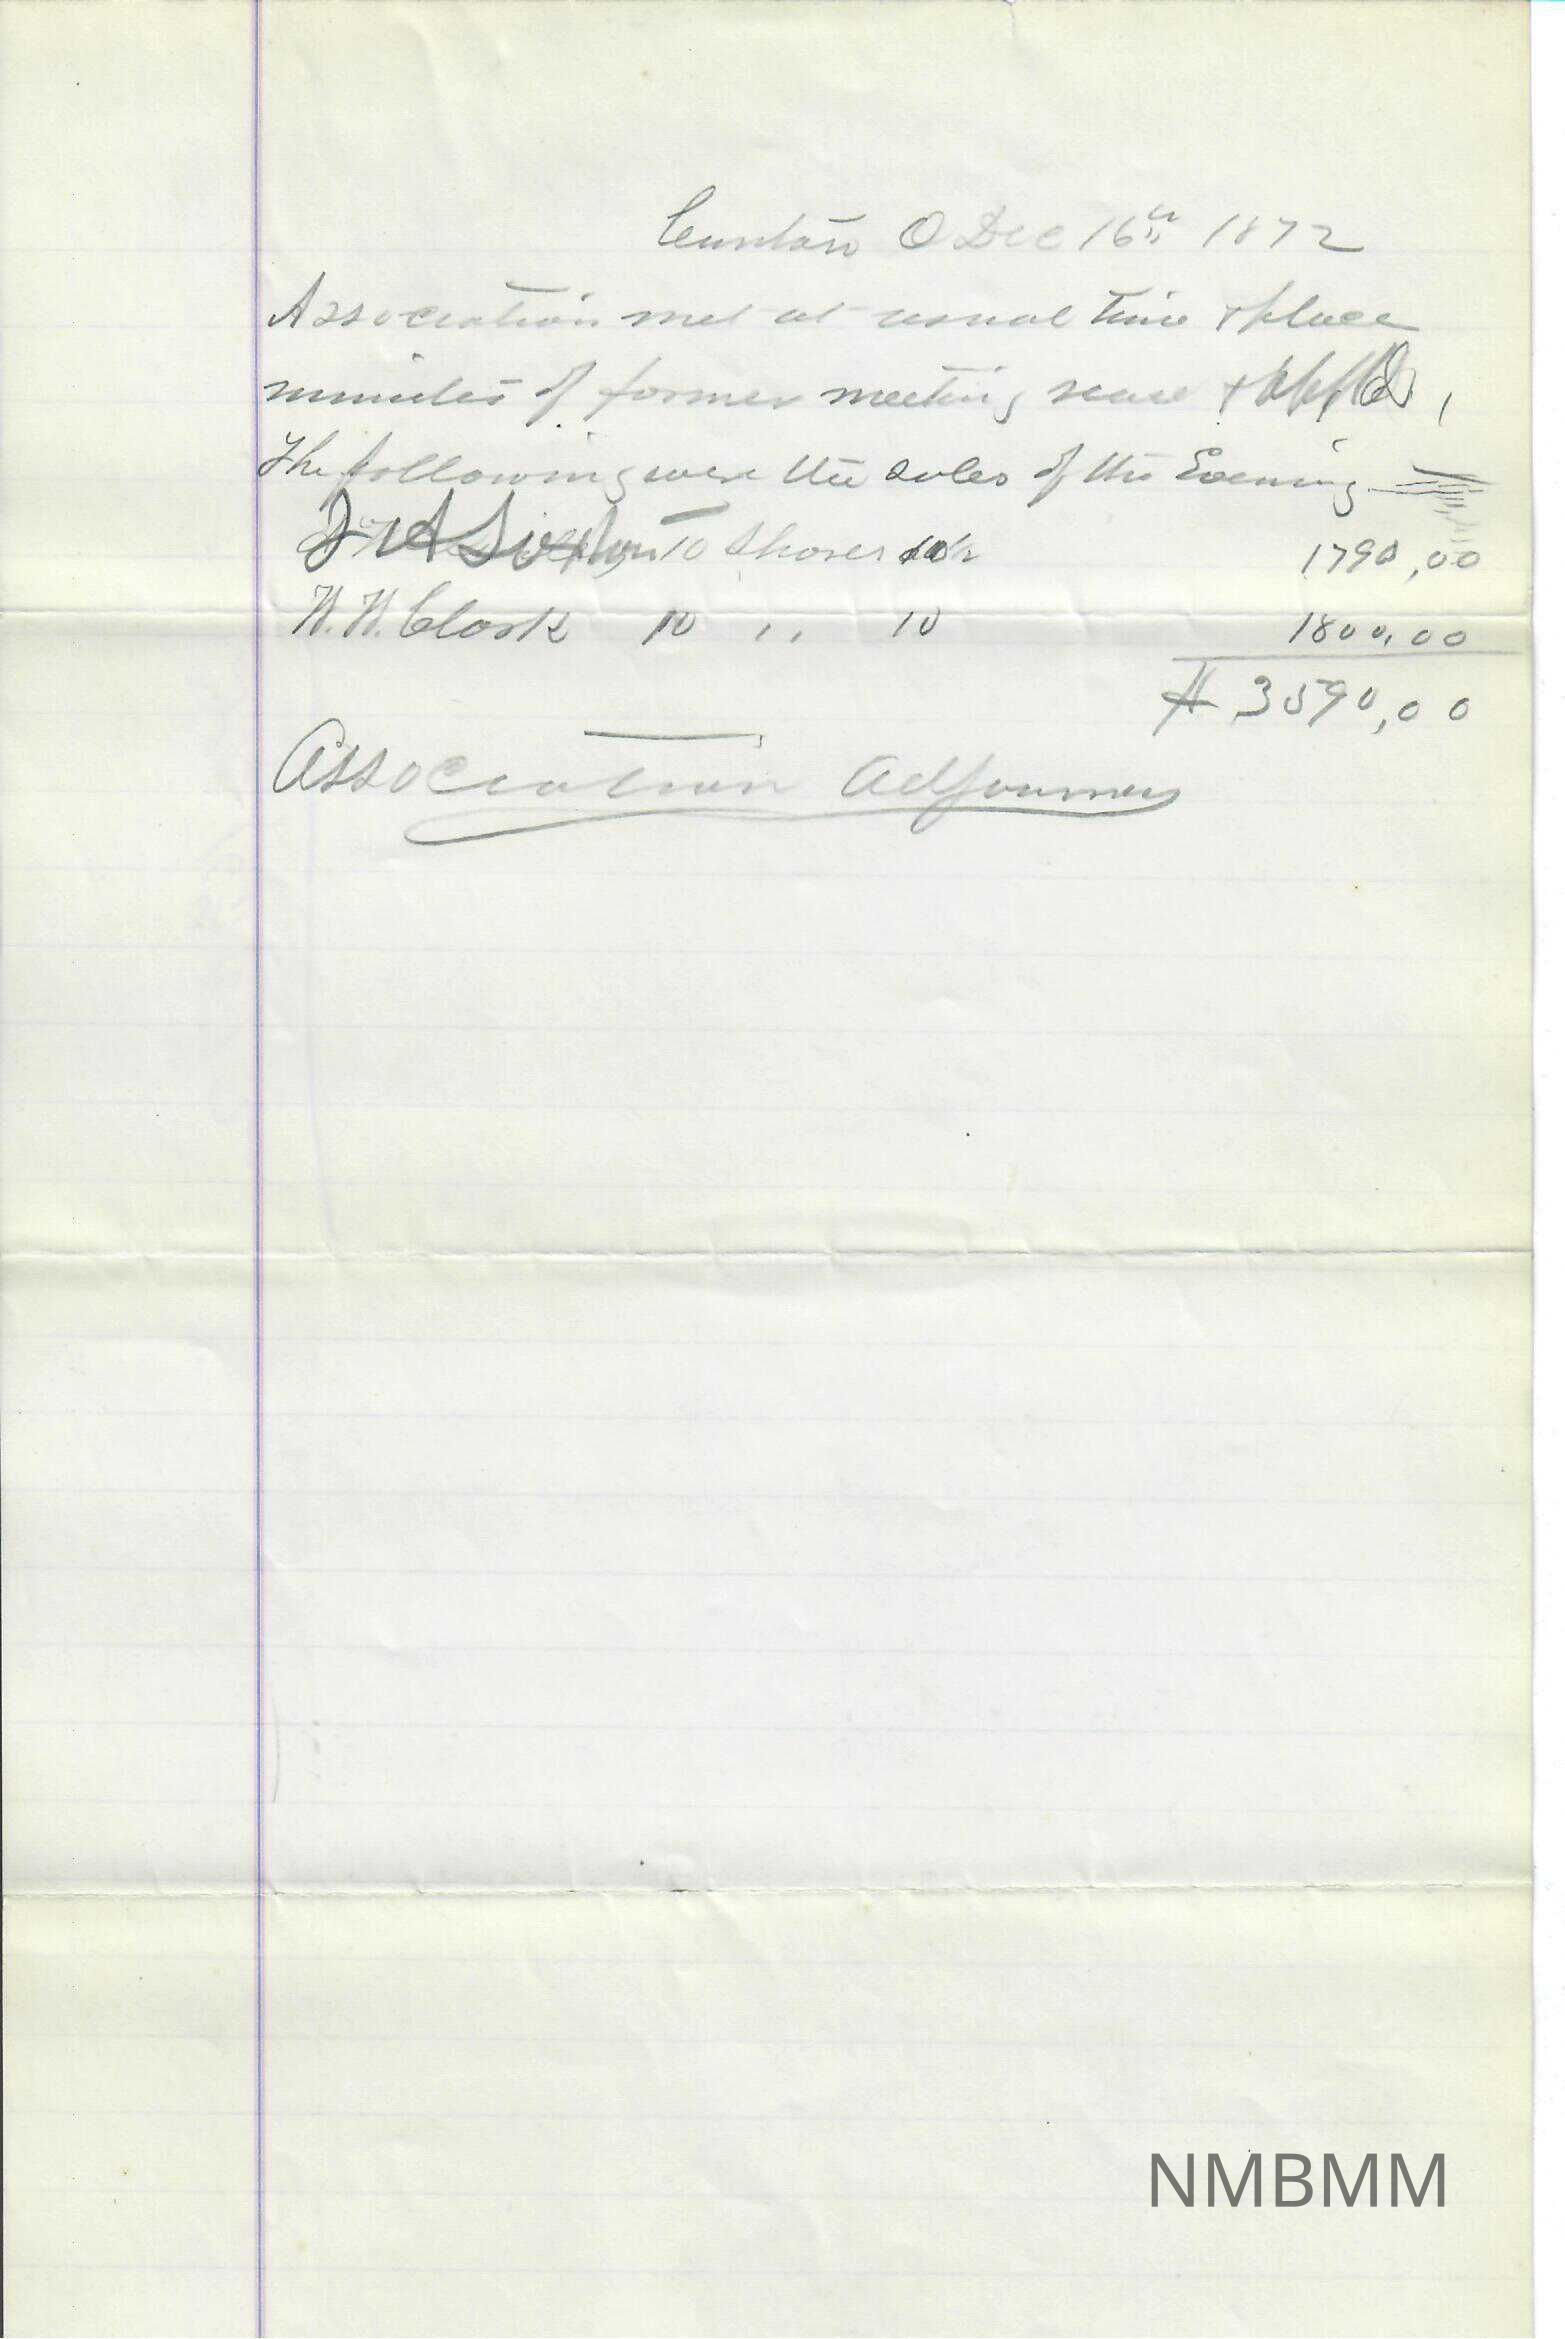 Canton O Dec 16th 1872
Association met at usual time & place
minutes of former meeting & 
The following were the sales of the Evening
10 Shares 1790,00
W. W. Clark 10 ,, 10 1800,00
$ 3590,00
Association Adjourned
NMBMM